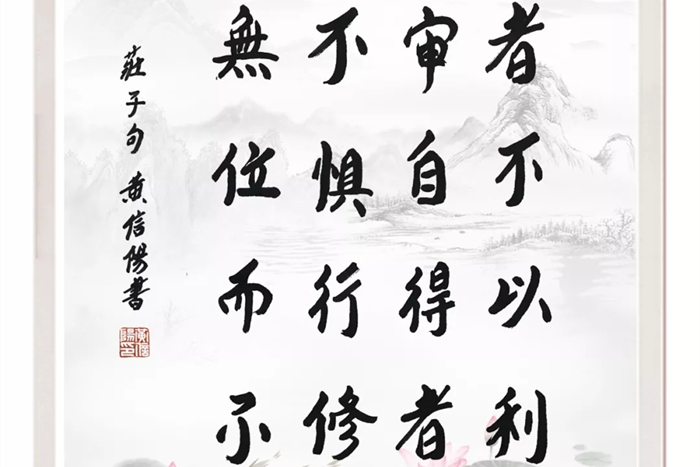 者不以利
审自得者
不惧行修
無位而不
莊子句 黄信陽書